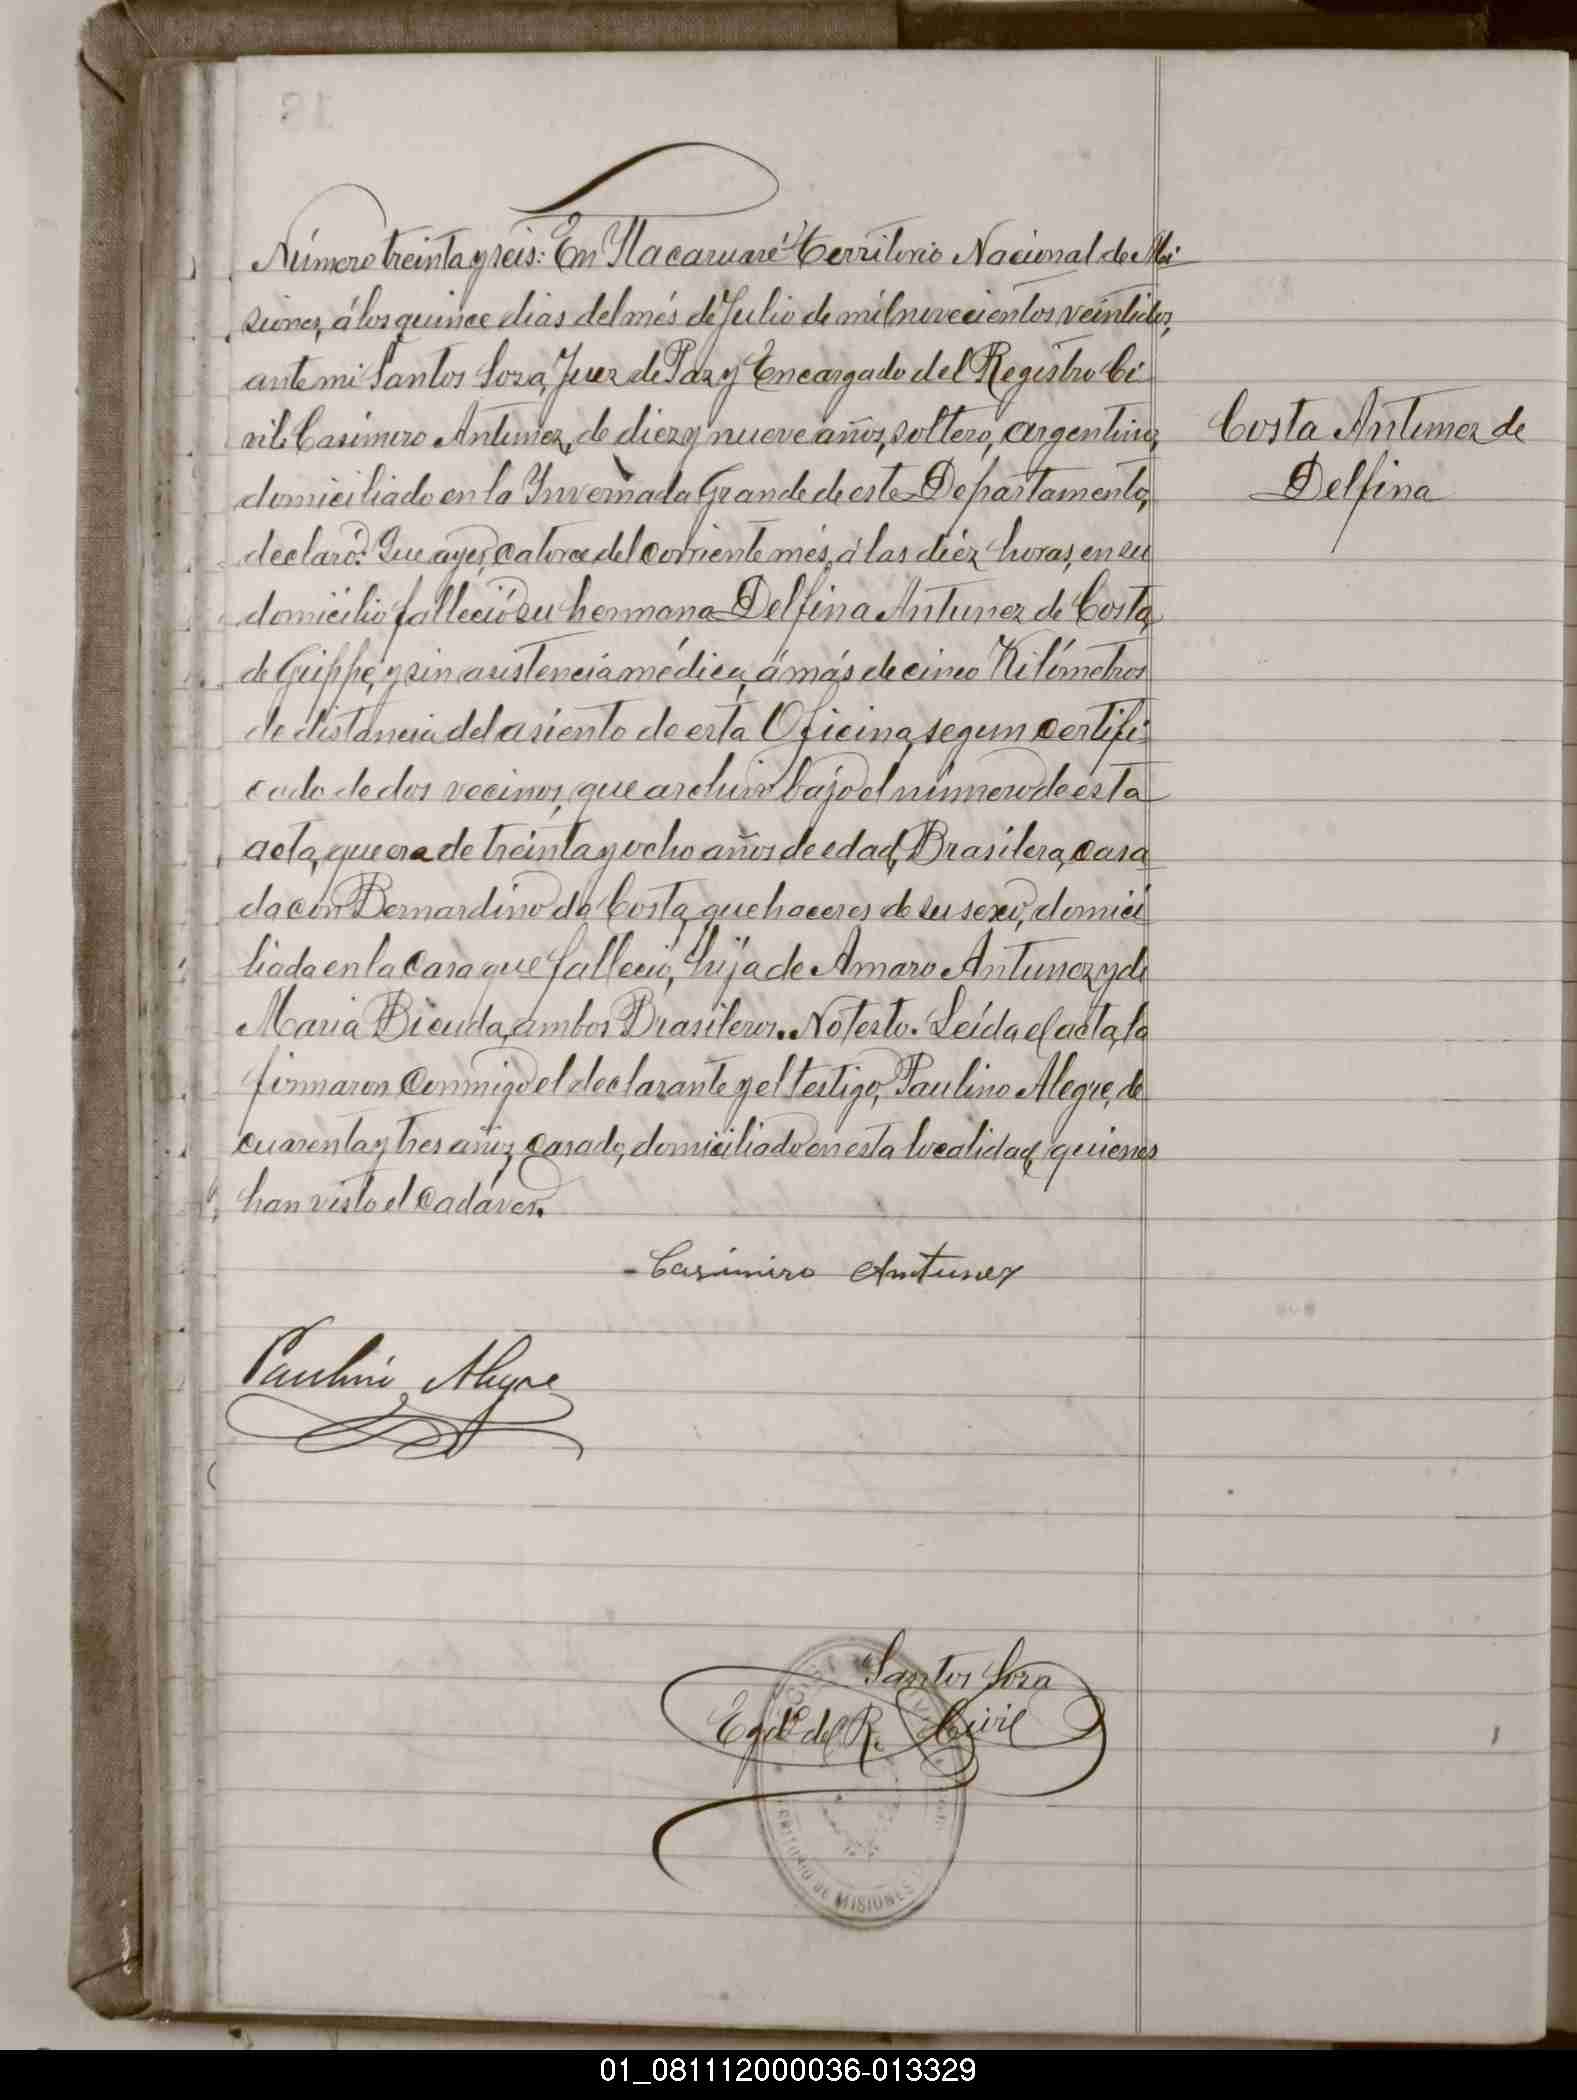 Número treinta y seis: En Itacaruaré Territorio Nacional de Mi
siones, á los quince dias del més de Julio de mil novecientos veintidos,
ante mi Santos Soza, Juez de Paz y Encargado del Registro Ci
vil: Casimiro Antunez, de diez y nueve años, soltero, argentino,
domiciliado en la Invernada Grande de este Departamento,
declaró: Que ayer, catorce del corriente més, á las diéz horas, en su
domicilio falleció su hermana Delfina Antunez de Costa,
de Grippe, y sin asistencia médica, á más de cinco Kilómetros
de distancia del asiento de esta Oficina, segun certifi
cado de dos vecinos, que archivo bajo el número de esta
acta, que era de treinta y ocho años de edad, Brasilera, casa
da con Bernardino da Costa, quehaceres de su sexo, domici
liada en la casa que falleció, hija de Amaro Antunez y de
Maria Bicuda, ambos Brasileros. No testo. Leída el acta, la
firmaron conmigo el declarante y el testigo, Paulino Alegre, de
cuarenta y tres años, casado, domiciliado en esta localidad, quienes
han visto el cadáver.
Costa Antunez de
Delfina
Casimiro Antunez
Paulino Alegre
Santos Soza
Egdo del R. Civil
TERRITORIO DE MISIONES
01_081112000036-013329